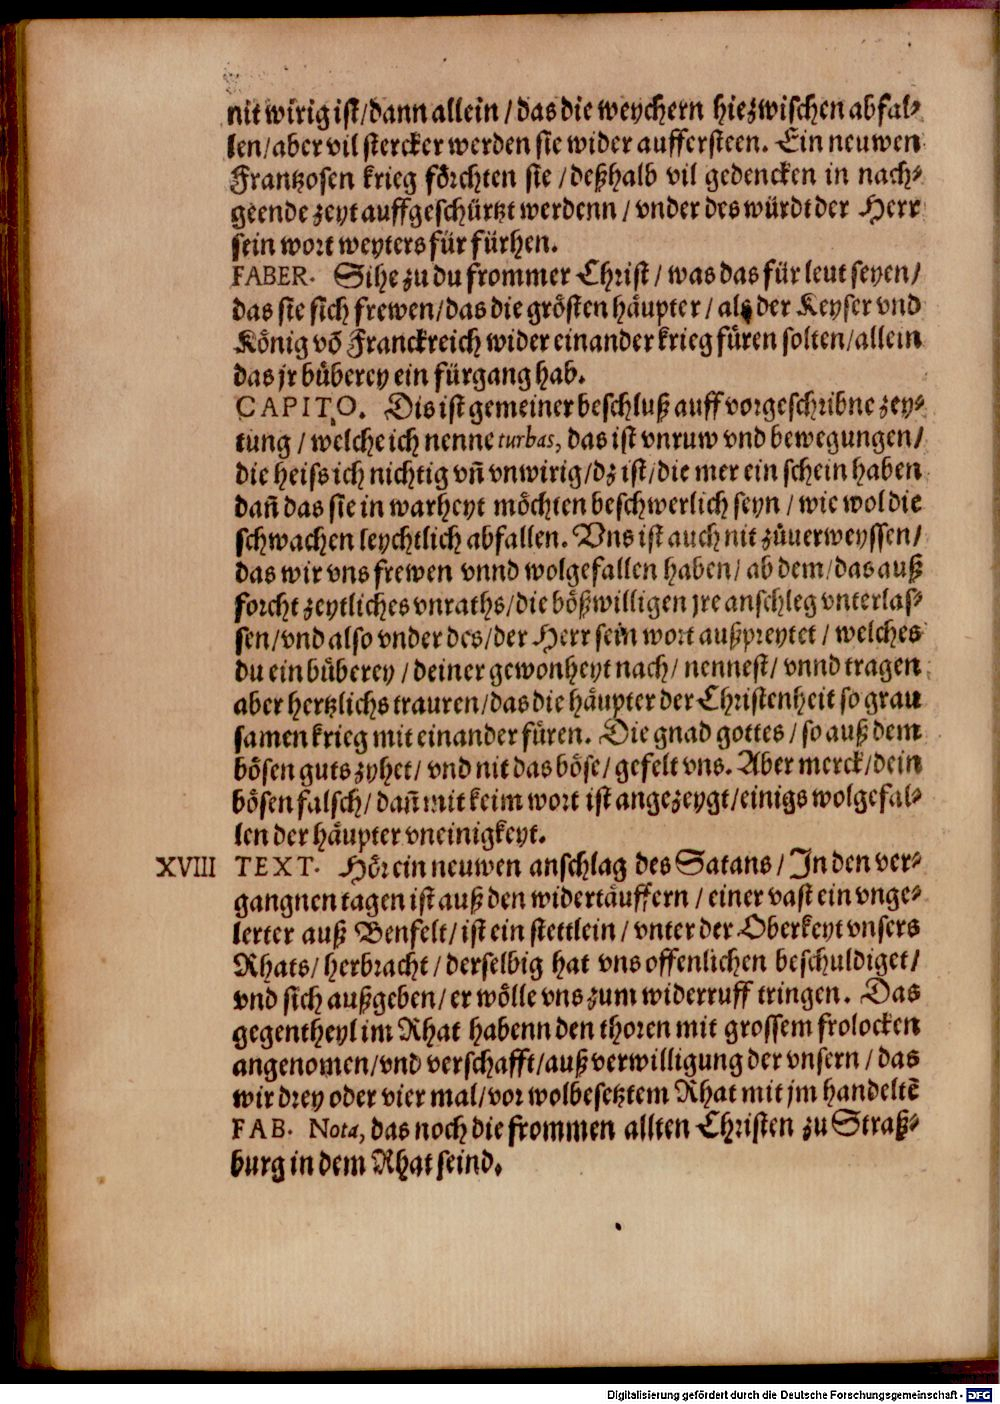 nit wirig ist/dann allein/das die weychern hiezwischen abfal⸗
len/aber vil stercker werden sie wider auffersteen. Ein neuwen
Frantzosen krieg förchten sie/deßhalb vil gedencken in nach⸗
geende zeyt auffgeschürtzt werdenn/vnder des würdt der Herr
sein wort weyters für fürhen.
FABER. Sihe zu du frommer Christ/was das für leut seyen/
das sie sich frewen/das die grösten häupter/als der Keyser vnd
König võ Franckreich wider einander krieg füren solten/allein
das jr büberey ein fürgang hab.
CAPITO. Dis ist gemeiner beschluß auff vorgeschribne zey⸗
tung/welche ich nenne turbas, das ist vnruw vnd bewegungen/
die heiss ich nichtig vñ vnwirig/dz ist/die mer ein schein haben
dañ das sie in warheyt möchten beschwerlich seyn/wie wol die
schwachen leychtlich abfallen. Vns ist auch nit zůuerweyssen/
das wir vns frewen vnnd wolgefallen haben/ab dem/das auß
forcht zeytliches vnraths/die bößwilligen jre anschleg vnterlas⸗
sen/vnd also vnder des/der Herr sein wort außpreytet/welches
du ein büberey/deiner gewonheyt nach/nennest/vnnd tragen
aber hertzlichs trauren/das die häupter der Christenheit so grau
samen krieg mit einander füren. Die gnad gottes/so auß dem
bösen guts zyhet/vnd nit das böse/gefelt vns. Aber merck/dein
bösen falsch/dañ mit keim wort ist angezeygt/einigs wolgefal⸗
len der häupter vneinigkeyt.
XVIII TEXT. Hör ein neuwen anschlag des Satans/In den ver⸗
gangnen tagen ist auß den widertäuffern/einer vast ein vnge⸗
lerter auß Benfelt/ist ein stettlein/vnter der Oberkeyt vnsers
Rhats/herbracht/derselbig hat vns offenlichen beschuldiget/
vnd sich außgeben/er wölle vns zum widerruff tringen. Das
gegentheyl im Rhat habenn den thoren mit grossem frolocken
angenomen/vnd verschafft/auß verwilligung der vnsern/das
wir drey oder vier mal/vor wolbesetztem Rhat mit jm handeltẽ
FAB. Nota, das noch die frommen allten Christen zu Straß⸗
burg in dem Rhat seind.
Digitalisierung gefördert durch die Deutsche Forschungsgemeinschaft - DFG